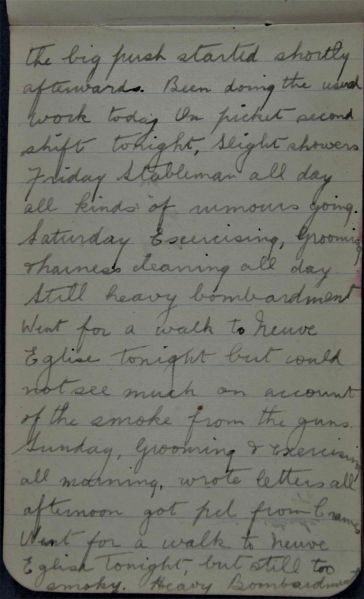 the big push started shortly
afterwards. Been doing the usual
work today On picket second
shift tonight, slight showers
Friday Stableman all day
all kinds of rumours going.
Saturday Exercising, Grooming
& harness cleaning all day
still heavy bombardment
Went for a walk to Neuve
Eglise tonight but could
not see much on account
of the smoke from the guns.
Sunday, Grooming & Exercising
all morning, wrote letters all
afternoon got pct from
Went for a walk to Neuve
Eglise tonight, but still too
smoky. Heavy Bombardment